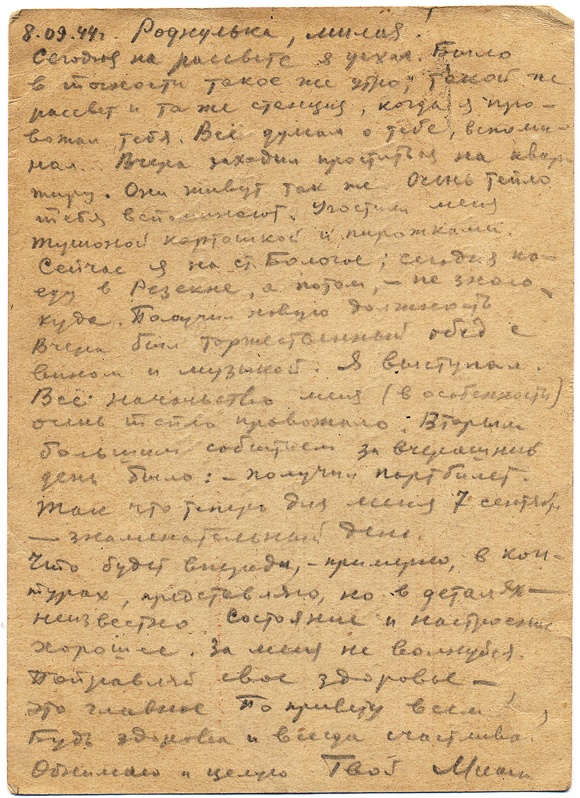 8.09.44г. Роднулька, милая!
Сегодня на рассвете я уехал. Было
в точности такое же утро, такой же
рассвет и та же станция, когда я про-
вожал тебя. Всё думал о тебе, вспоми-
нал. Вчера заходил проститься на квар-
тиру. Они живут так же. Очень тепло
тебя вспоминают. Угостили меня
тушоной картошкой и пирожками.
Сейчас я на ст. Бологое; сегодня по-
еду в Резекне, а потом, – не знаю
куда. Получил новую должность
Вчера был торжественный обед с
вином и музыкой. Я выступал.
Всё начальство меня (в особенности)
очень тепло провожало. Вторым
большим событием за вчерашний
день было: – получил партбилет.
Так что теперь для меня 7 сентябр
– знаменательный день.
Что будет впереди, – примерно, в кон-
турах, представляю, но в деталях –
неизвестно состояние и настроение
хорошее. За меня не волнуйся.
Поправляй свое здоровье –
это главное По привету всем!
Будь здорова и всегда счастлива.
Обнимаю и целую Твой